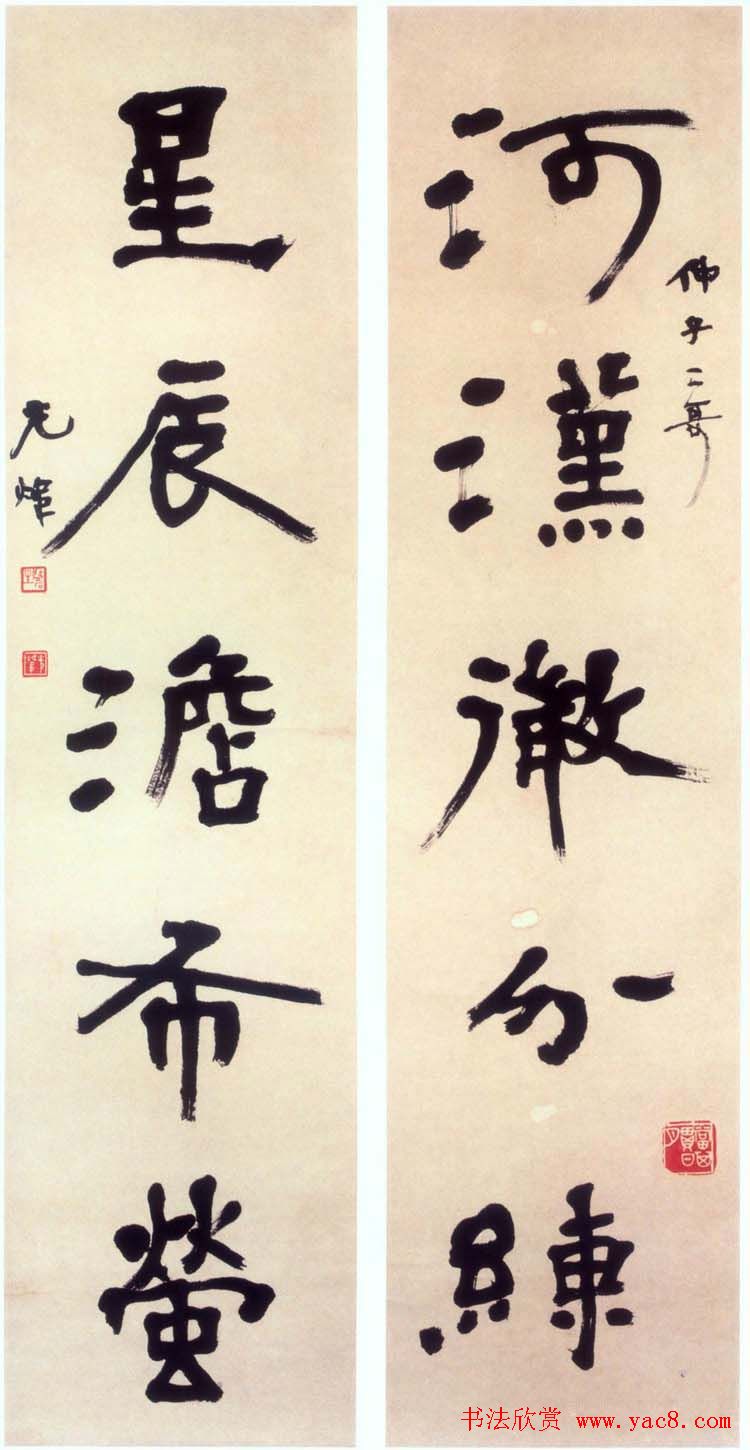 河漢徹分練
仲子二
星辰澹布螢
光煒
书法欣赏 www.yac8.com